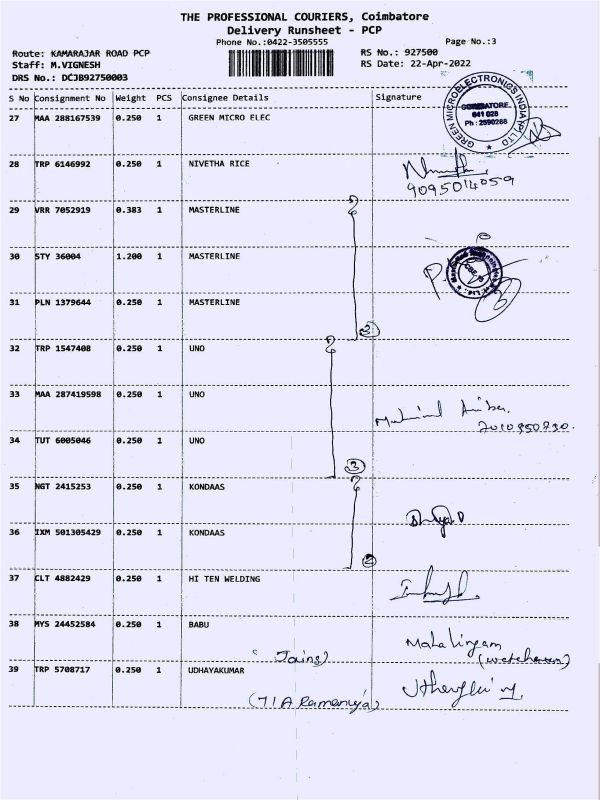 THE PROFESSIONAL COURIERS, Coimbatore
Delivery Runsheet - PCP
Phone No.:0422-3505555
Page No.:3
Route: KAMARAJAR ROAD PCP
RS No.: 927500
Staff: M.VIGNESH
RS Date: 22-Apr-2022
DRS No.: DCJB92750003
S No Consignment No Weight PCS Consignee Details Signature
27 MAA 288167539 0.250 1 GREEN MICRO ELEC
GREEN MICROELECTRONICS INDIA (P) LTD
COIMBATORE
641 028
Ph : 2590288
28 TRP 6146992 0.250 1 NIVETHA RICE
9095014059
29 VRR 7052919 0.383 1 MASTERLINE
30 STY 36004 1.200 1 MASTERLINE
31 PLN 1379644 0.250 1 MASTERLINE
3
32 TRP 1547408 0.250 1 UNO
33 MAA 287419598 0.250 1 UNO
34 TUT 6005046 0.250 1 UNO
3
35 NGT 2415253 0.250 1 KONDAAS
36 IXM 501305429 0.250 1 KONDAAS
2
37 CLT 4882429 0.250 1 HI TEN WELDING
38 MYS 24452584 0.250 1 BABU
Mahalingam
(Jains)
39 TRP 5708717 0.250 1 UDHAYAKUMAR